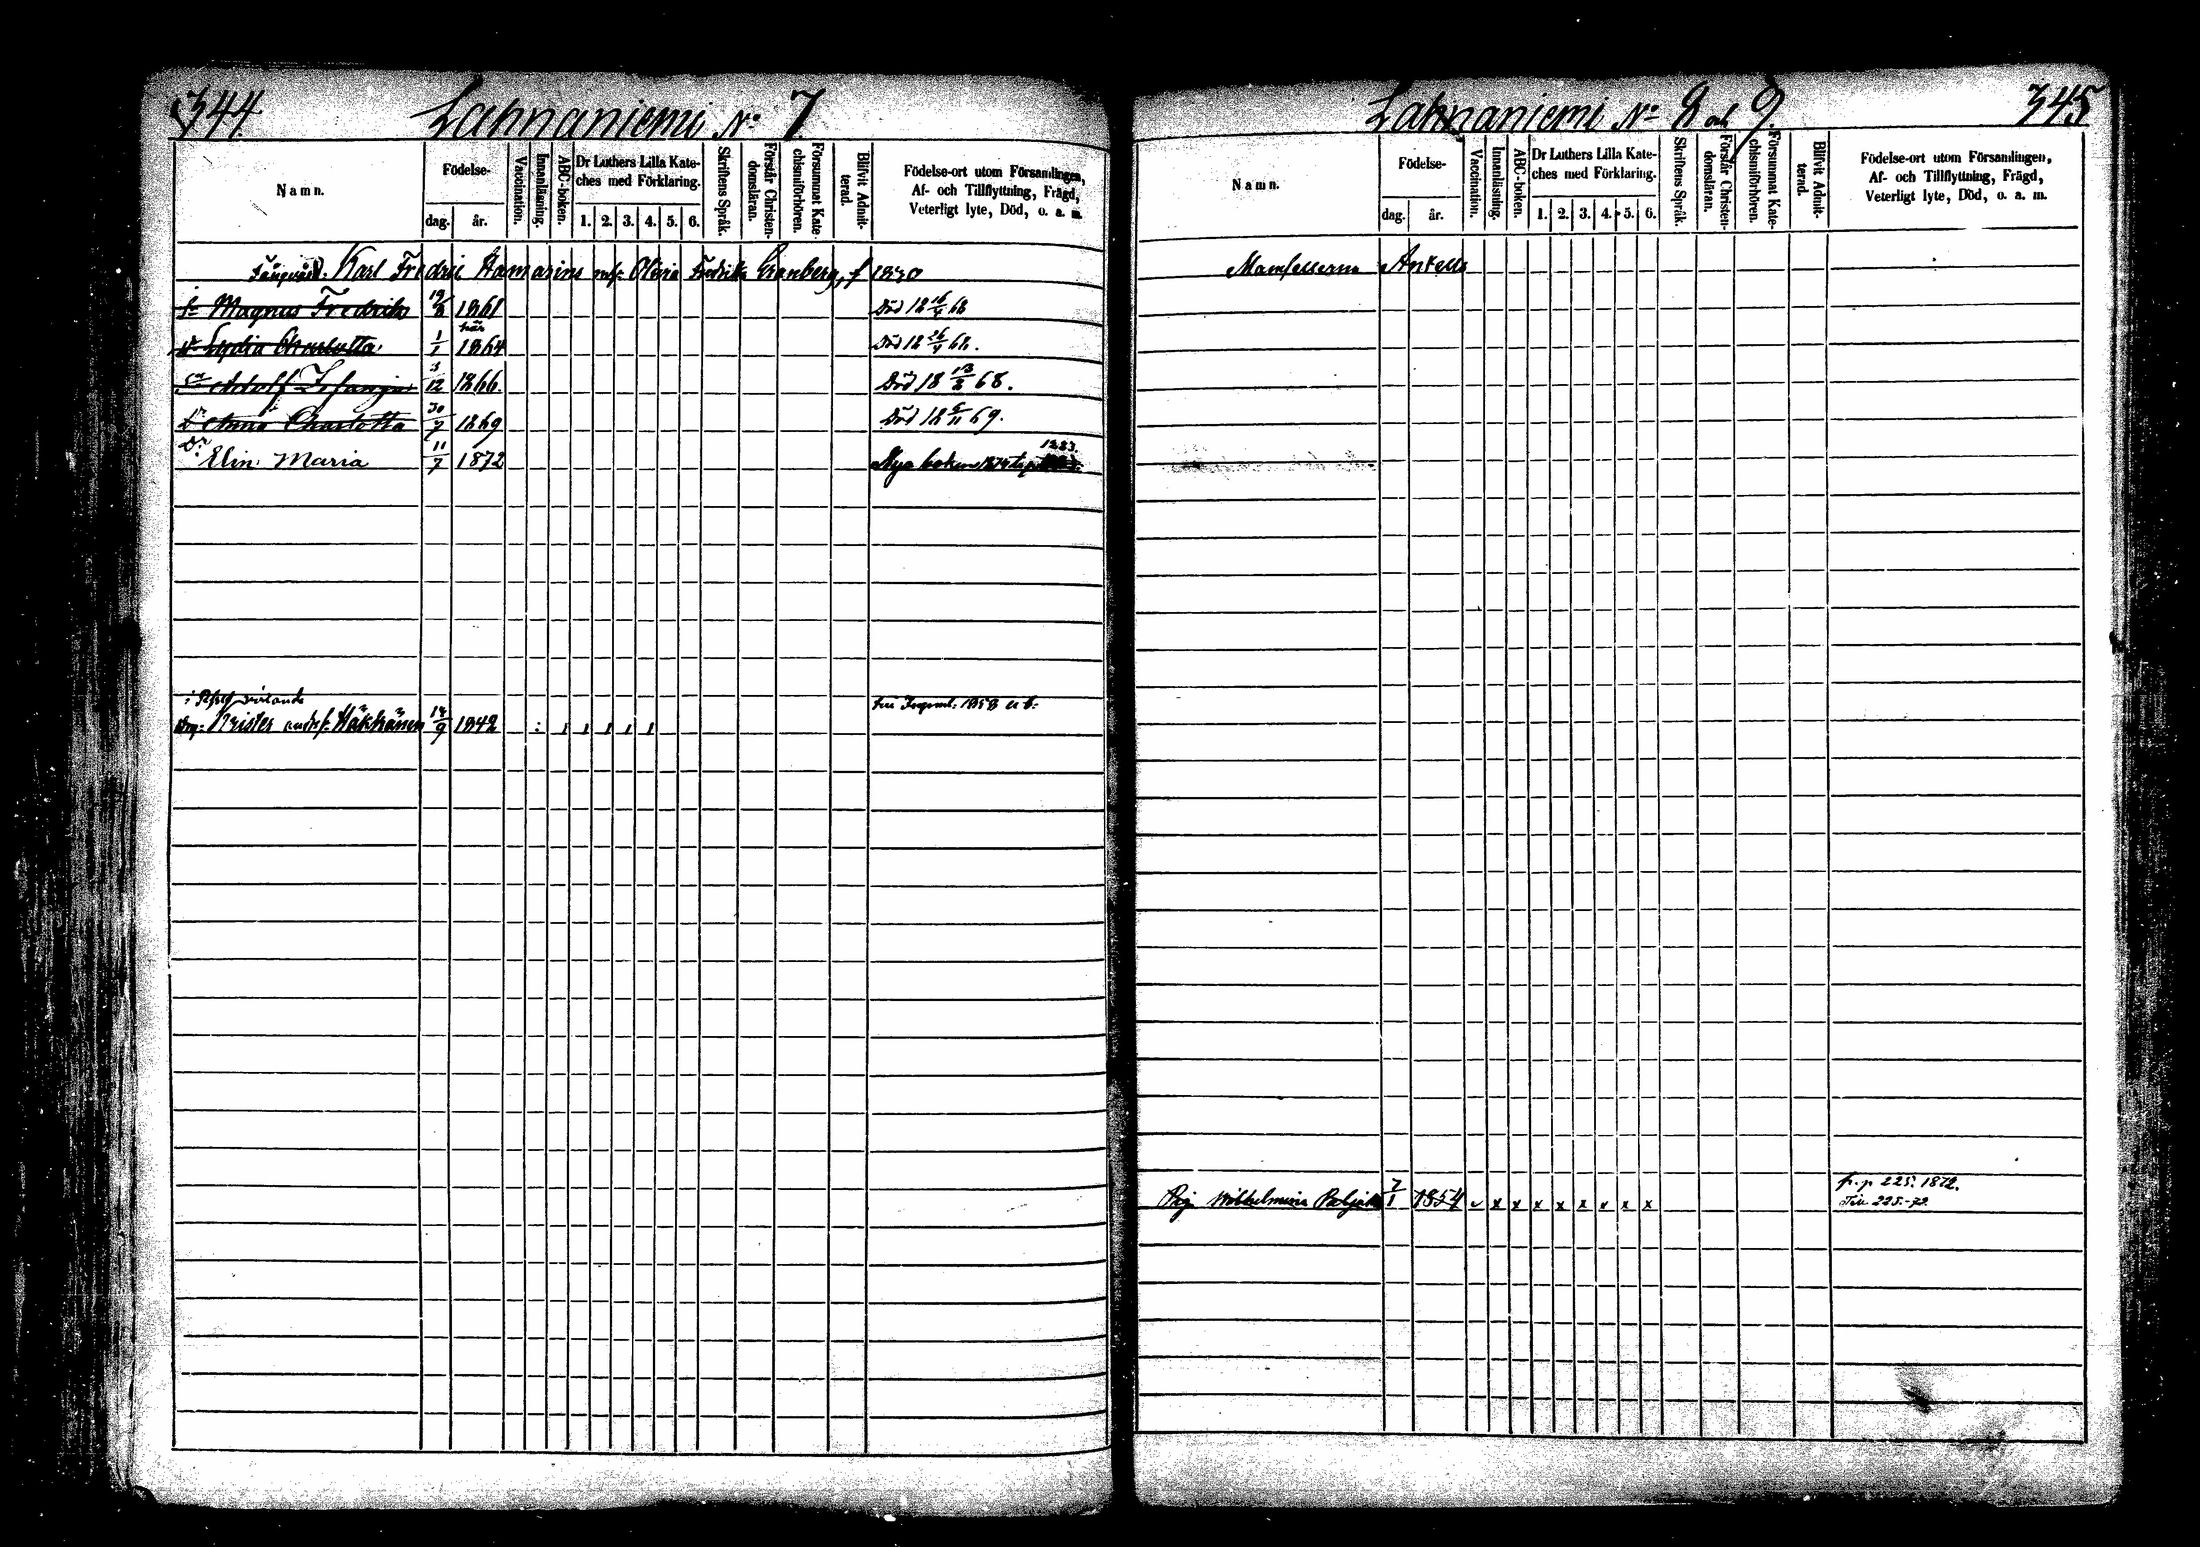 344.
Lahnaniemi No 7.
Namn.
Födelse-
dag.
år.
Vaccination.
Innanläsning.
ABC-boken.
Dr Luthers Lilla Kate-
ches med Förklaring.
1. 2. 3. 4. 5. 6.
Skriftens Språk.
Förstår Christen-
domsläran.
Försummat Kate-
chismiförhören.
Blifvit Admit-
terad.
Födelse-ort utom Församlingen,
Af- och Tillflyttning, Frägd,
Veterligt lyte, Död, o. a. m.
Karl Fredric Hamarins Fredrika Granberg, f 1830
Magnus Fredrik 1861 Död 18 68
här
Lydia Charlotta 1/1 1864 Död 18 68.
Adolf 3/12 1866. Död 18 13/2 68.
Anna Charlotta 30/7 1869 Död 18 5/11 69.
1883.
Dr Elin Maria 11/7 1872 Nya boken 1874
1858
Krister Häkkänen 1842
345
Lahnaniemi No 8 och 9.
Namn.
Födelse-
dag.
år.
Vaccination.
Innanläsning.
ABC-boken.
Dr Luthers Lilla Kate-
ches med Förklaring.
1. 2. 3. 4. 5. 6.
Skriftens Språk.
Förstår Christen-
domsläran.
Försummat Kate-
chismiförhören.
Blifvit Admit-
terad.
Födelse-ort utom Församlingen,
Af- och Tillflyttning, Frägd,
Veterligt lyte, Död, o. a. m.
Mamsellerna Antell
fr. p 225. 1872.
Pig. Wilhelmina 7/1 1854 v x x x x x x x x Till 225.-72.